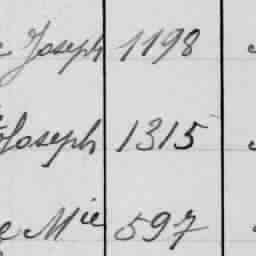 Joseph 1198
Joseph 1315
Mie 597